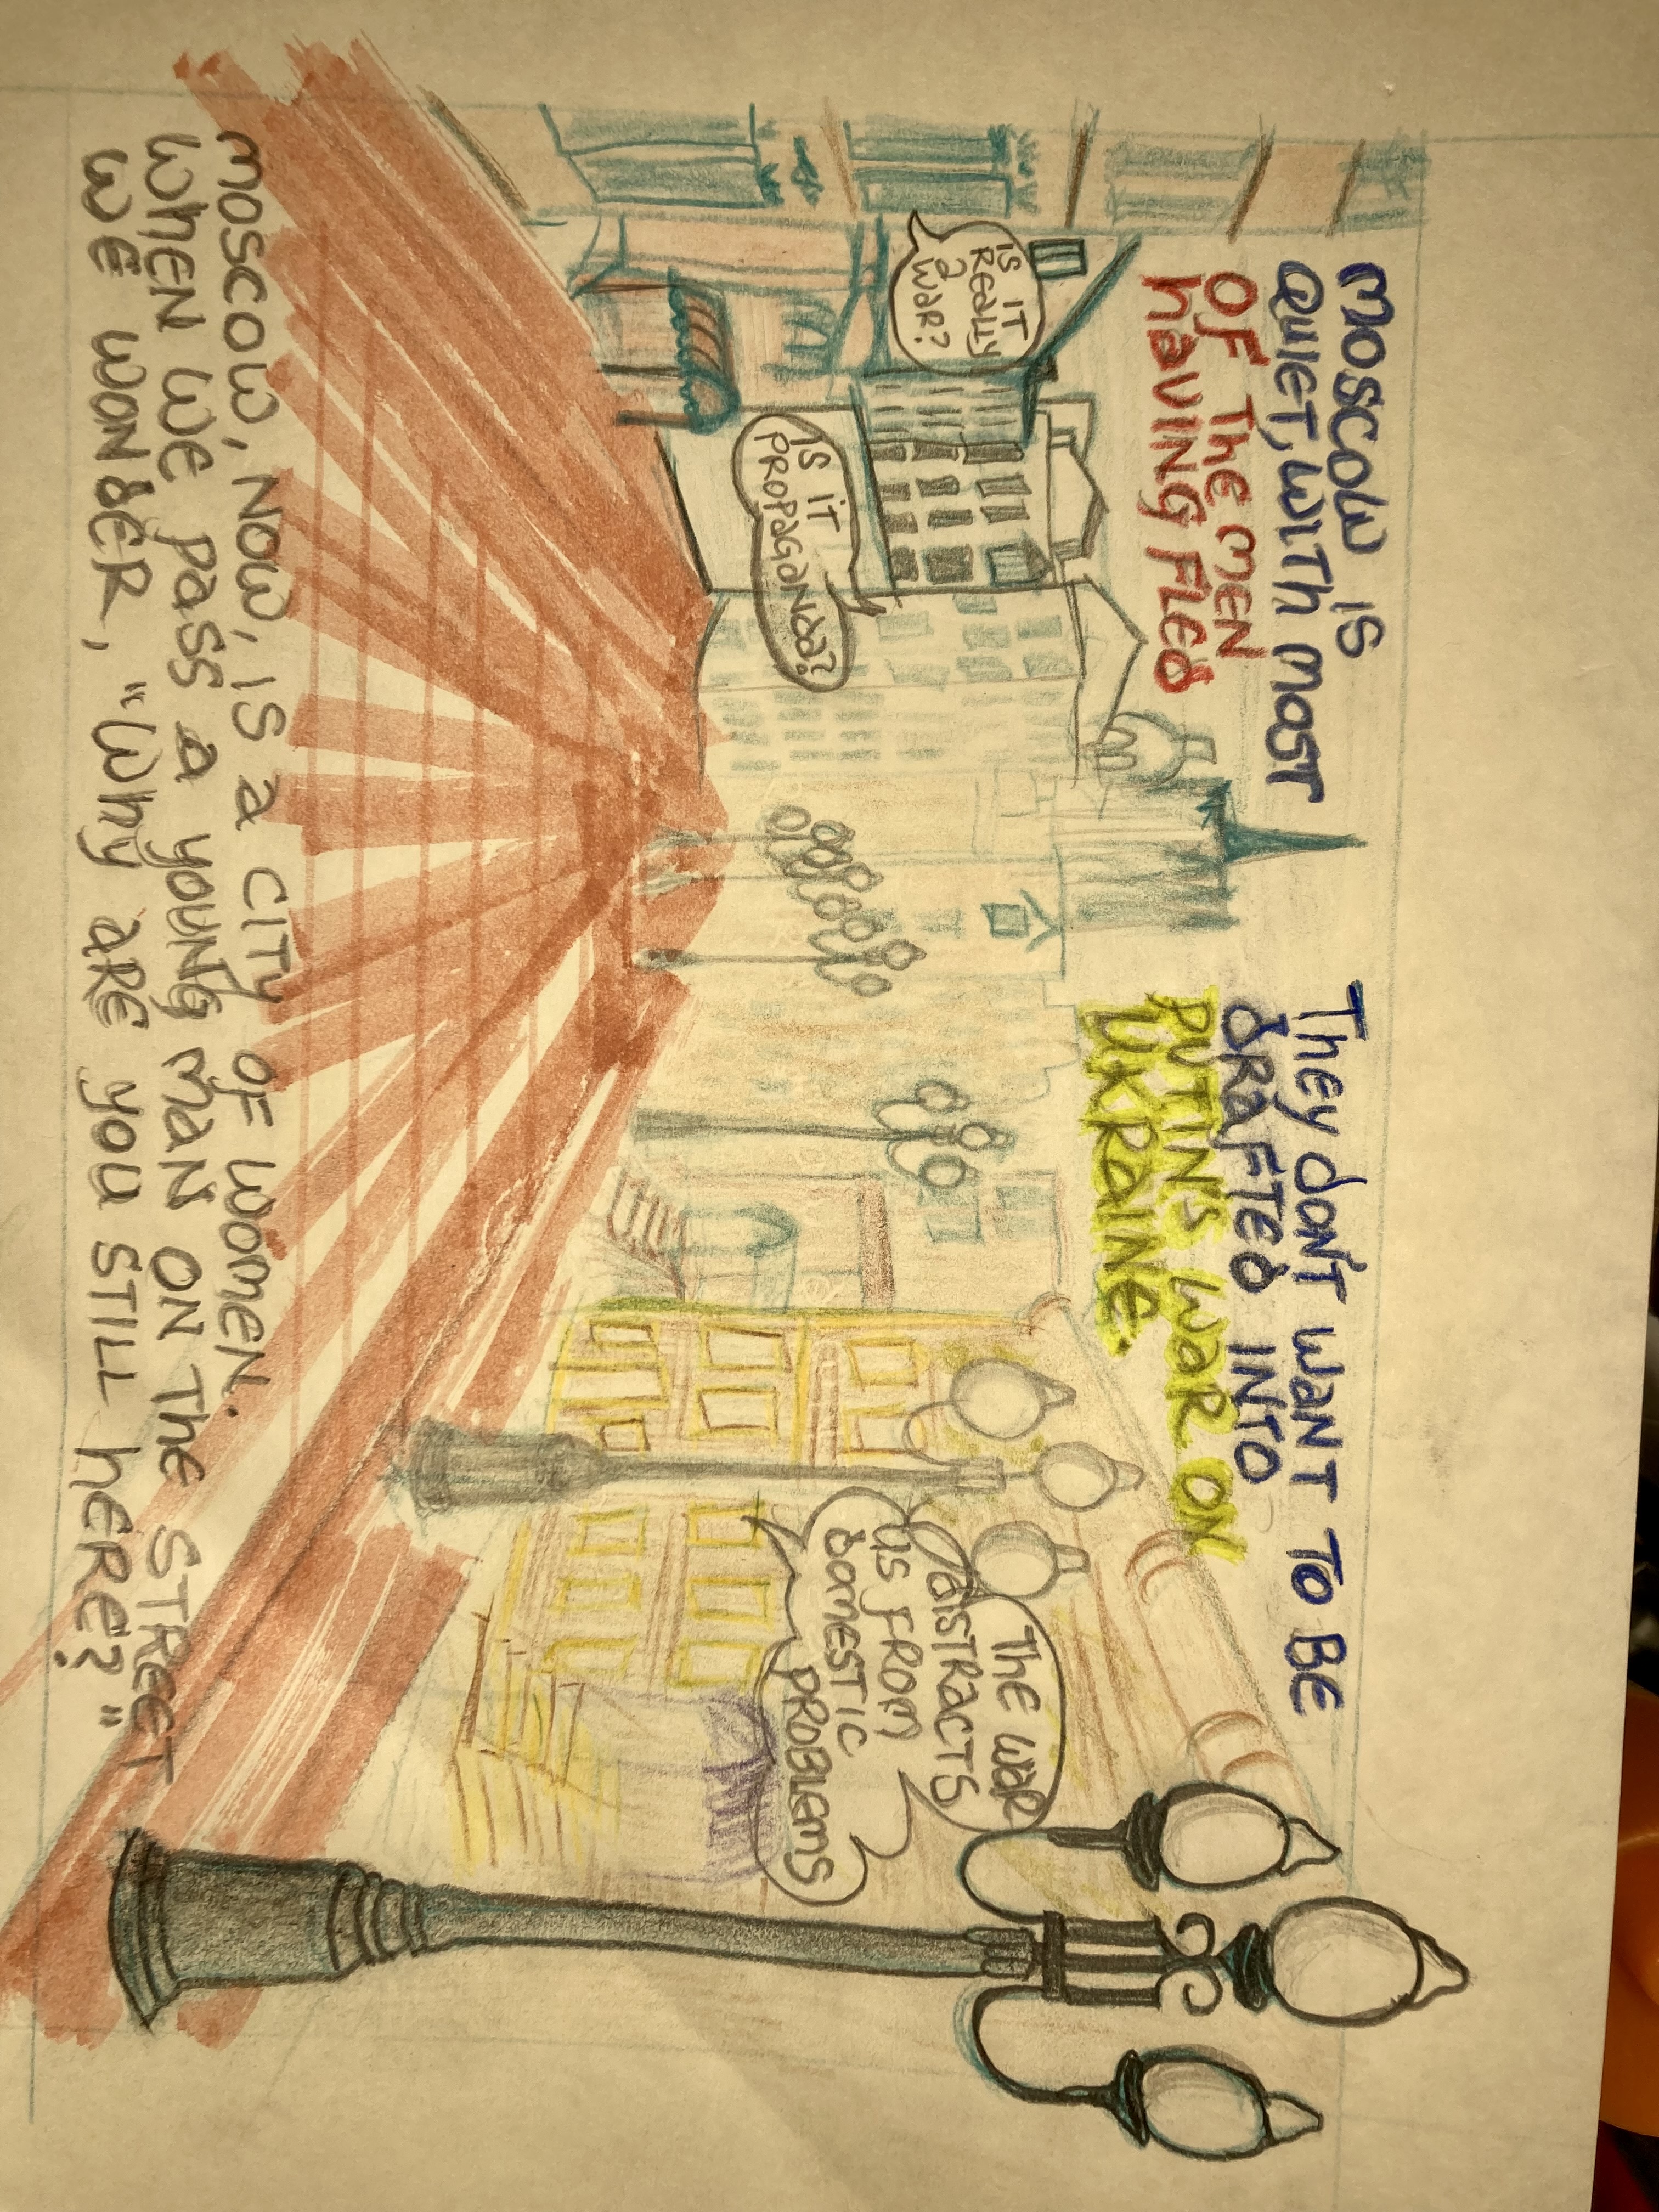 MOSCOW IS
QUIET, WITH MOST
OF THE MEN
HAVING FLED
THEY DON'T WANT TO BE
DRAFTED INTO
PUTIN'S WAR ON
UKRAINE.
IS IT
REALLY
A
WAR?
IS IT
PROPAGANDA?
THE WAR
DISTRACTS
US FROM
DOMESTIC
PROBLEMS
MOSCOW, NOW, IS A CITY OF WOMEN.
WHEN WE PASS A YOUNG MAN ON THE STREET
WE WONDER, "WHY ARE YOU STILL HERE?"